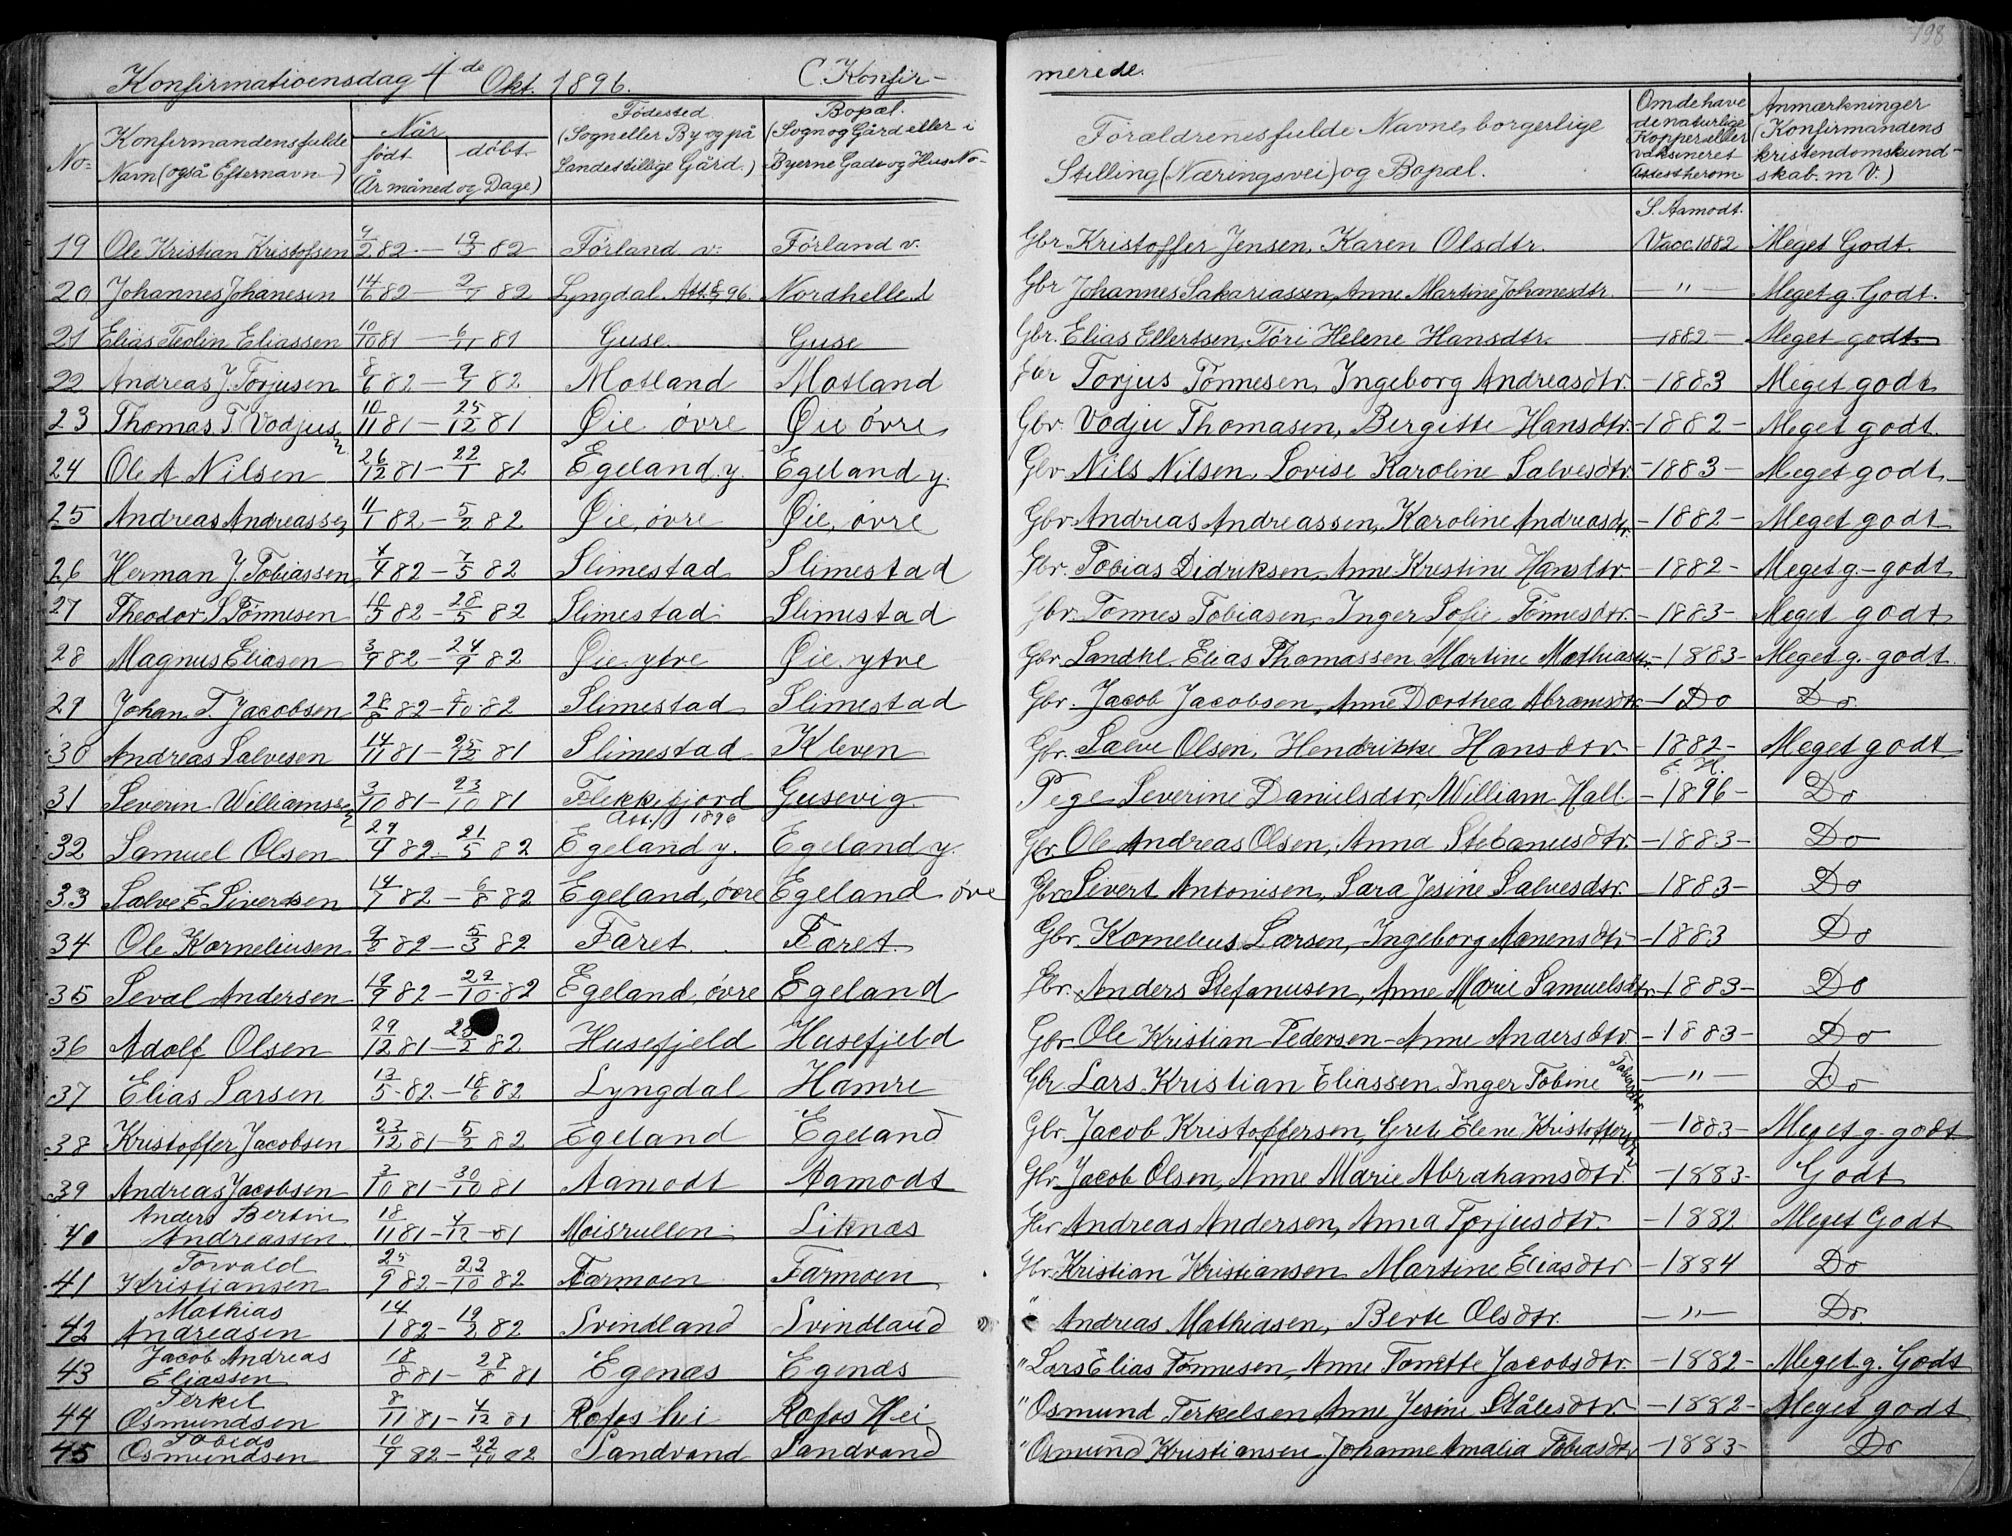 198
Konfirmatioensdag 4de Okt. 1896. C. Konfir-
merede.
No: Konfirmandens fulde Navn (også Efternavn) Når født døbt (År måned og Dage) Fødested (Sogn eller By og på Landet tillige Gård.) Bopæl. (Sogn og Gård eller i Byerne Gade og Hus No- Førældrenes fulde Navne, borgerlige Stilling (Næringsvei) og Bopæl. Om de have de naturlige Kopper eller vaksineret Attest herom Anmærkninger (Konfirmandens kristendomskund- skab. m V.)
S. Aamodt.
19 Ole Kristian Kristofsen 9/2 82 – 19/3 82 Førland v. Førland v. Gbr. Kristoffer Jensen, Karen Olsdtr. Vacc. 1882 Meget Godt.
20 Johannes Johanesen 14/6 82 – 2/7 82 Lyngdal Att. 96 Nordhelle l Gbr Johannes Sakariassen, Anne Martine Johanesdtr. – " – Meget g. Godt.
21 Elias Teolin Eliassen 10/10 81 – 6/11 81 Guse Guse Gbr. Elias Ellertsen, Töri Helene Hansdtr. – 1882 – Meget godt.
22 Andreas J. Torjusen 8/6 82 – 9/7 82 Motland Motland Gbr Torjus Tønnesen, Ingeborg Andreasdtr. – 1883 Meget godt
23 Thomas T Vodjusn 10/11 81 – 25/12 81 Øie øvre Øie øvre Gbr. Vodju Thomasen, Bergitte Hansdtr. – 1882 – Meget godt.
24 Ole A Nilsen 26/12 81 – 22/1 82 Egeland y. Egeland y. Gbr. Nils Nilsen, Lovise Karoline Salvesdtr. – 1883 – Meget godt
25 Andreas Andreassen 4/1 82 – 5/2 82 Øie, øvre Øie, øvre Gbr. Andreas Andreassen, Karoline Andreasdtr – 1882 – Meget godt
26 Herman J. Tobiassen 4/4 82 – 7/5 82 Slimestad Slimestad Gbr. Tobias Didriksen, Anne Kristine Hansdtr. – 1882 – Meget g. – godt
27 Theodor S Tønnesen 10/5 82 – 28/5 82 Slimestad Slimestad Gbr. Tønnes Tobiasen, Inger Sofie Tønnesdtr. – 1883 – Meget godt
28 Magnus Eliasen 3/9 82 – 24/9 82 Øie, ytre Øie, ytre Gbr. Landhl. Elias Thomassen Martine Mathiasdtr. – 1883 – Meget g. godt.
29 Johan T. Jacobsen 28/8 82 – 8/10 82 Slimestad Slimestad Gbr. Jacob Jacobsen, Anne Dorthea Abramsdtr. – 1 Do Do
30 Andreas Salvesen 14/11 81 – 25/12 81 Slimestad Kleven Gbr. Salve Olsen, Hendrikke Hansdtr. – 1882 – Meget godt
31 Severin Williamsen 3/10 81 – 23/10 81 Flekkefjord Att. 1896 Gusevig Pige Severine Danielsdtr, William Hall. E. H. – 1896 – Do
32 Samuel Olsen 29/4 82 – 21/5 82 Egeland y. Egeland y. Gbr. Ole Andreas Olsen, Anna Stefanusdtr. – 1883 – Do
33 Salve E Siverdsen 14/7 82 – 6/8 82 Egeland, øvre Egeland øvre Gbr. Sivert Antonisen, Sara Jesine Salvesdtr. – 1883 – Do
34 Ole Korneliusen 9/2 82 – 5/3 82 Faret Faret Gbr. Kornelius Larsen, Ingeborg Aanensdtr – 1883 Do
35 Seval Andersen 19/9 82 – 29/10 82 Egeland, øvre Egeland Gbr. Anders Stefanusen, Anne Marie Samuelsdtr – 1883 – Do
36 Adolf Olsen 29/12 81 – /2 82 Husefjeld Husefjeld Gbr. Ole Kristian Pedersen – Anne Andersdtr. – 1883 – Do
37 Elias Larsen 13/5 82 – 18/6 82 Lyngdal Hamre Gbr Lars Kristian Eliassen Inger Tobine Tobiasdtr – " – Do
38 Kristoffer Jacobsen 23/12 81 – 5/2 82 Egeland Egeland Gbr. Jacob Kristoffersen, Grete Elene Kristoffersdtr – 1883 – Meget g. godt
39 Andreas Jacobsen 3/10 81 – 30/10 81 Aamodt Aamodt Gbr. Jacob Olsen, Anne Marie Abrahamsdtr. – 1883 – Godt
40 Anders Bertin Andreassen 18/11 81 – 4/12 – 81 Moisrullen Liknæs Gbr Andreas Andersen, Anna Torjusdtr – 1882 Meget Godt
41 Torvald Kristiansen 25/9 82 – 22/10 82 Farmoen Farmoen Gbr. Kristian Kristiansen Martine Eliasdtr – 1884 Do
42 Mathias Andreasen 14/1 82 – 19/2 82 Svindland Svindland " Andreas Mathiasen, Berte Olsdtr. – " – Do.
43 Jacob Andreas Eliassen 18/8 81 – 28/8 81 Egenæs Egenæs " Lars Elias Tønnesen, Anne Tonette Jacobsdtr. – 1882 – Meget g. Godt
44 Terkel Osmundsen 8/11 81 – 4/12 81 Rofos hei Rofos Hei " Osmund Terkelsen Anne Jesine Stålesdtr. – 1882 – Meget godt
45 Tobias Osmundsen 10/9 82 – 22/10 82 Sandvand Sandvand " Osmund Kristiansen Johanne Amalia Tobiasdtr – 1883 – Do